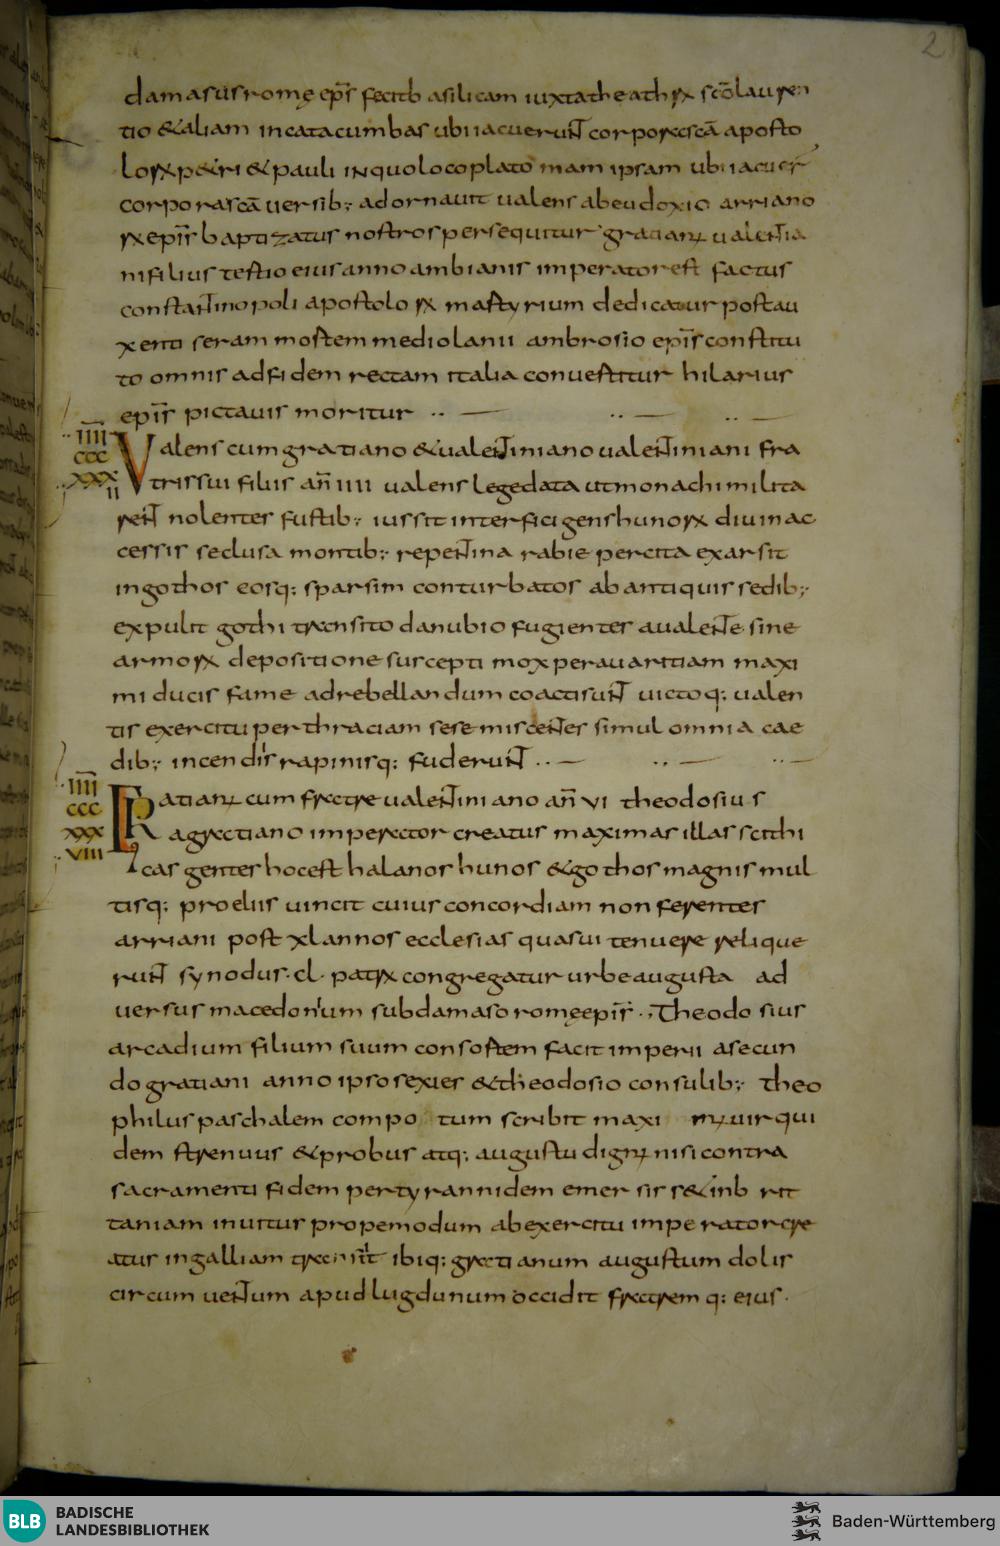 2
damasus rome ep̄s fecit basilicam iuxta theathrꝝ sc̄o lauren
tio & aliam in catacumbas ubi iacuerunt corpora sc̄a aposto
lorꝝ p&ri & pauli in quo loco platomam ipsam ubi iacuer̄
corpora sc̄a uersib; adornauit ualens ab eudoxio arriano
rꝝ ep̄s baptizatus nostros persequitur gratianꝰ ualentia
ni filius testio eius anno ambianis imperator est factus
constantinopoli apostolorꝝ martyrium dedicatur post au
xenti seram mortem mediolanii ambrosio ep̄s constitu
to omnis ad fidem rectam italia conuertitur hilarius
ep̄s pictauis moritur
IIII CCC XXX II
Valens cum gratiano & ualentiniano ualentiniani fra
tris sui filiis an̄ IIII ualens lege data ut monachi milita
rent nolentes fustib; iussit interfici gens hunorꝝ diu inac
cessis seclusa montib; repentina rabie percita exarsit
in gothos eosq; sparsim conturbatos ab antiquis sedib;
expulit gothi transito danubio fugientes a ualente sine
armorꝝ depositione suscepti mox per auaritiam maxi
mi ducis fame ad rebellandum coacti sunt uictoq; ualen
tis exercitu per thraciam sese miscentes simul omnia cae
dib; incendiis rapinisq; fuderunt
IIII CCC XXX VIII
GRatianꝰ cum fratre ualentiniano an̄ VI theodosius
a gratiano imperator creatus maximas illas scithi
cas gentes hoc est halanos hunos & gothos magnis mul
tisq; proeliis uincit cuius concordiam non ferentes
arriani post xl annos ecclesias quas ui tenuere relique
runt synodus · cl · patrꝝ congregatur urbe augusta ad
uersus macedonium sub damaso rome ep̄s · Theodosius
arcadium filium suum consortem facit imperii a secun
do gratiani anno ipso sexies & theodosio consulib; theo
philus paschalem compotum scribit maximꝰ uir qui
dem strenuus & probus atq; augustu dignꝰ nisi contra
sacramenti fidem per tyrannidem emersiss& in brit
taniam inuitus propemodum ab exercitu imperator cre
atus in galliam transiit ibiq; gratianum augustum dolis
circumuentum apud lugdunum occidit fratremq; eius ·
BLB BADISCHE
LANDESBIBLIOTHEK
Baden-Württemberg